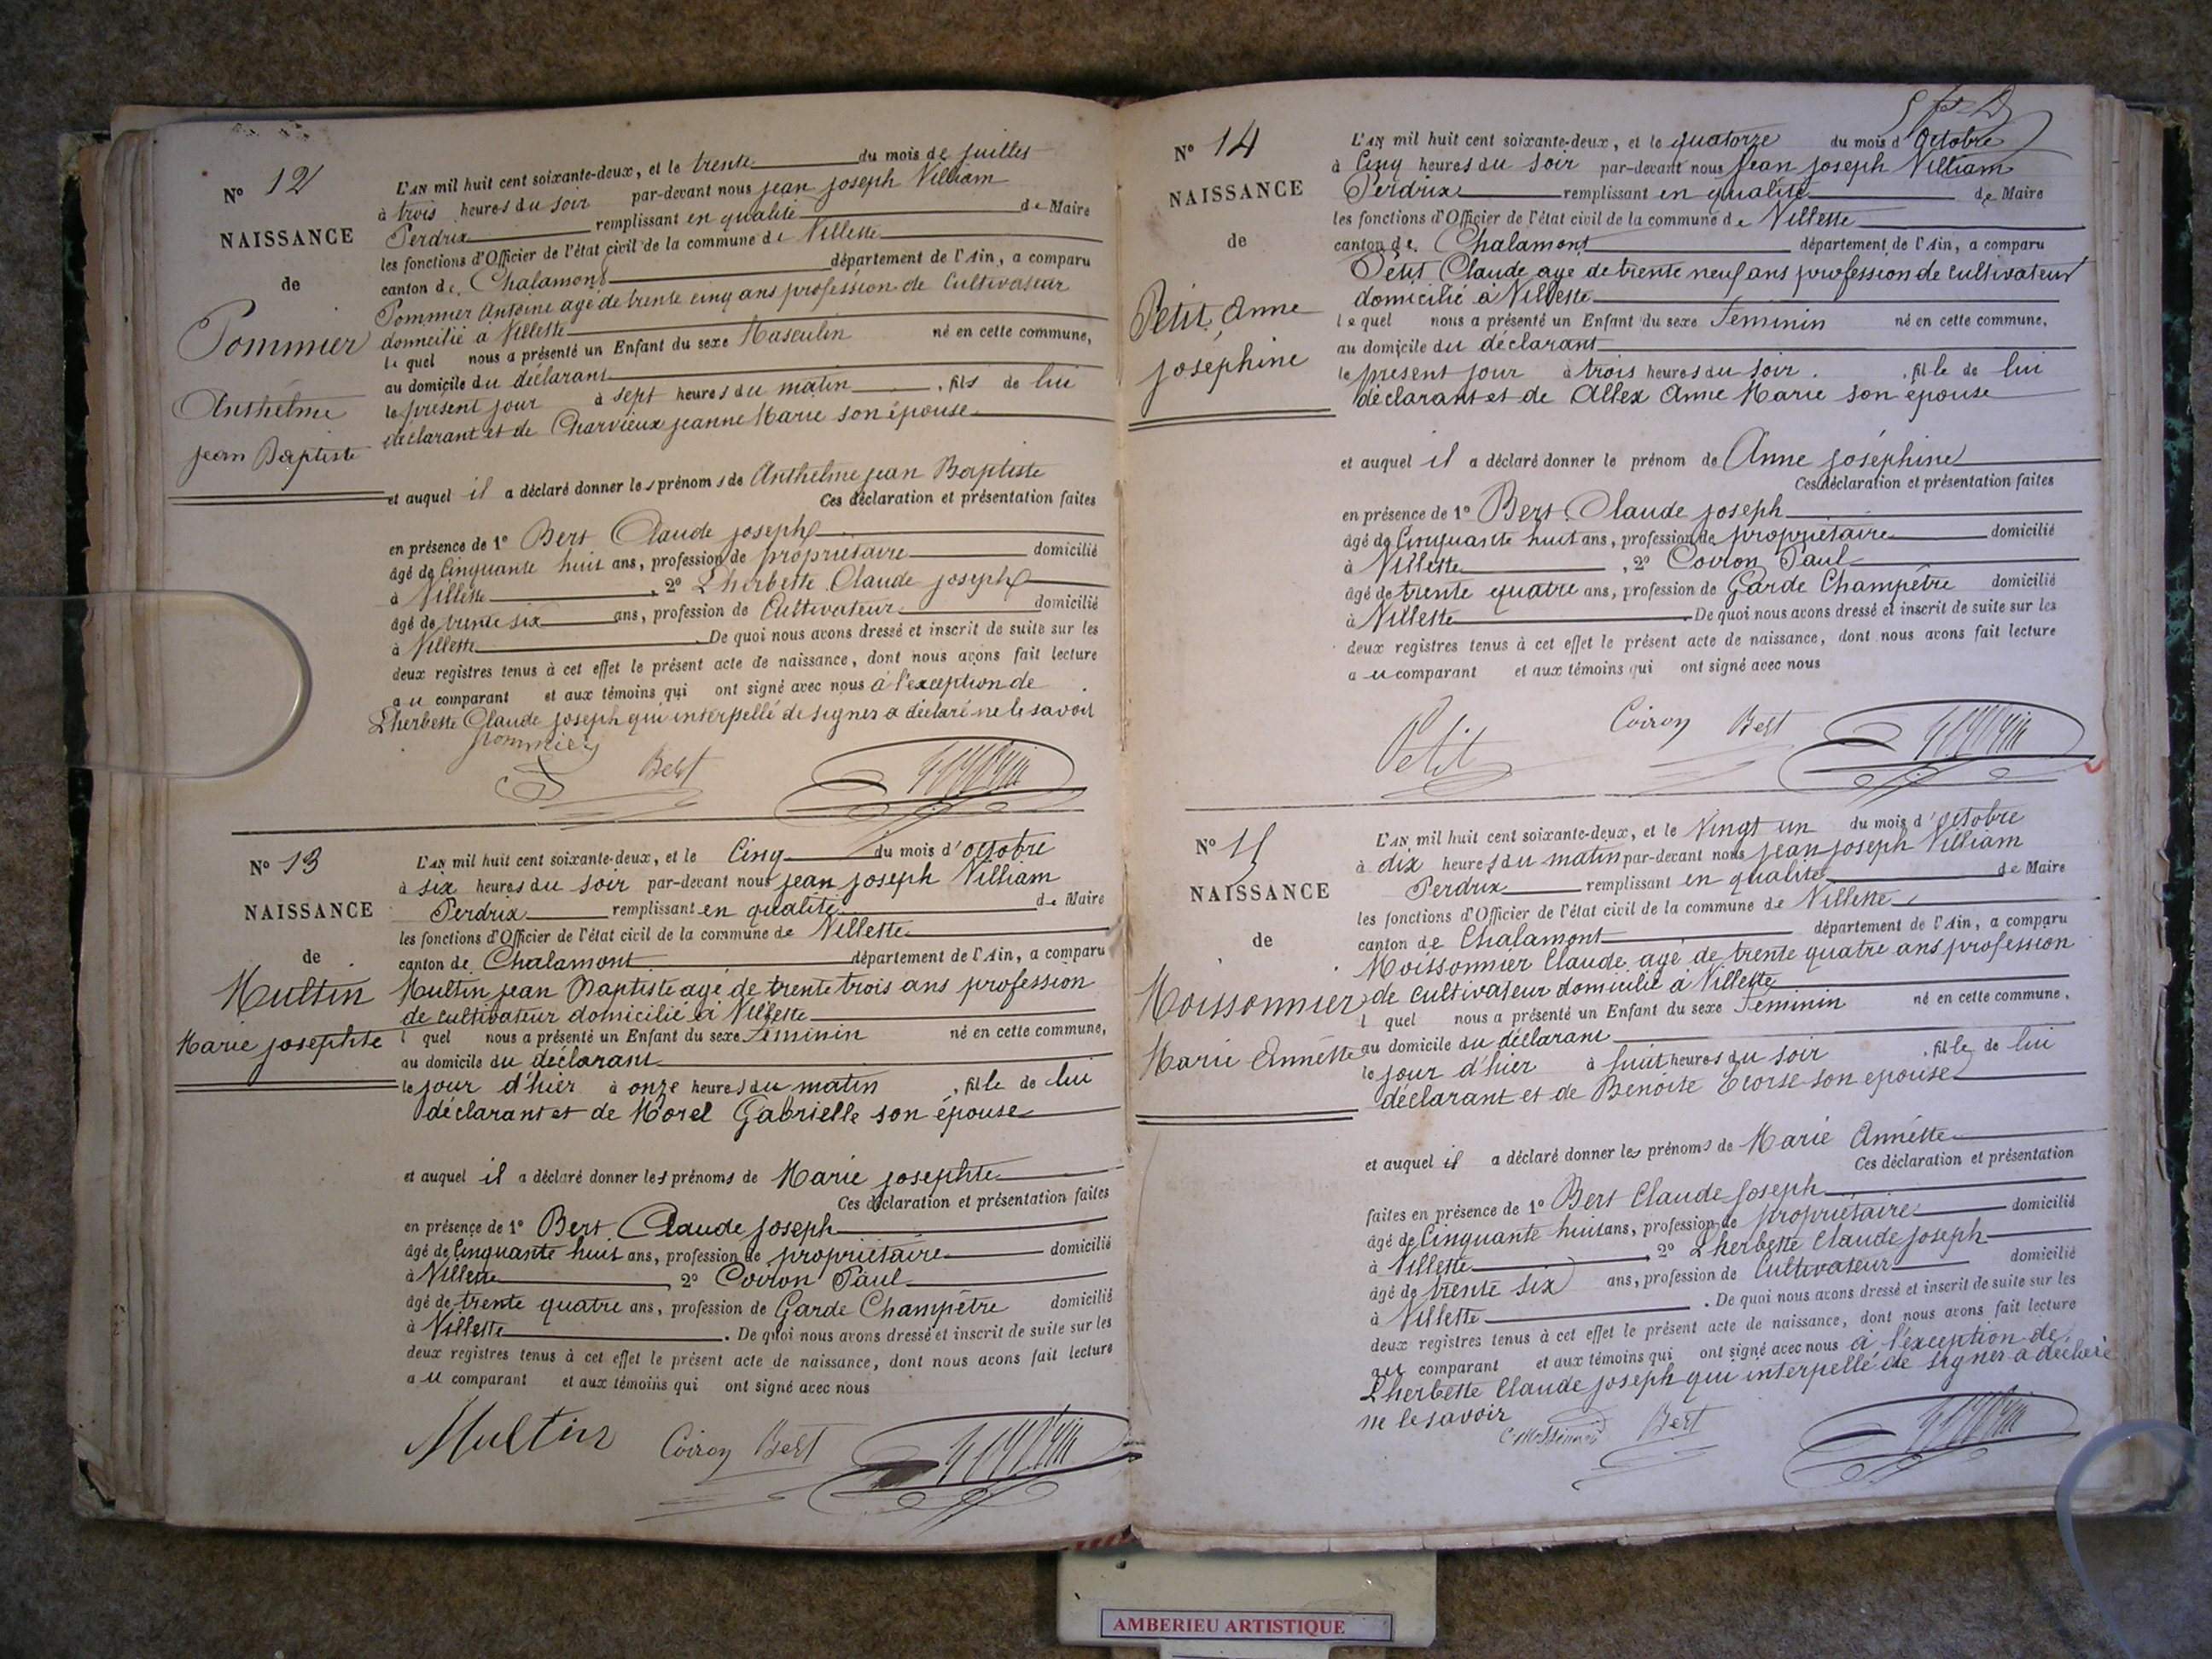 N° 12
NAISSANCE
de
Pommier
Anthelme
jean Baptiste
L'AN mil huit cent soixante-deux, et le trente du mois de juillet
à trois heures du soir par-devant nous jean joseph Villiam
Perdrix remplissant en qualité de Maire
les fonctions d'Officier de l'état civil de la commune de Villette
canton de Chalamont département de l'Ain, a comparu
Pommier Antoine agé de trente cinq ans profession de Cultivateur
domicilié à Villette
le quel nous a présenté un Enfant du sexe Masculin né en cette commune,
au domicile du déclarant
le présent jour à sept heures du matin, fils de lui
déclarant et de Charvieux jeanne Marie son épouse
et auquel il a déclaré donner les prénoms de Anthelme jean Baptiste
Ces déclaration et présentation faites
en présence de 1° Bert Claude joseph
âgé de Cinquante huit ans, profession de propriétaire domicilié
à Villette, 2° Lherbette Claude joseph
âgé de trente six ans, profession de Cultivateur domicilié
à Villette. De quoi nous avons dressé et inscrit de suite sur les
deux registres tenus à cet effet le présent acte de naissance, dont nous avons fait lecture
au comparant et aux témoins qui ont signé avec nous à l'exception de
Lherbette Claude joseph qui interpellé de signer a déclaré ne le savoir
pommier
Bert
N° 13
NAISSANCE
de
Multin
Marie josephte
L'AN mil huit cent soixante-deux, et le Cinq du mois d'octobre
à six heures du soir par-devant nous jean joseph Villiam
Perdrix remplissant en qualité de Maire
les fonctions d'Officier de l'état civil de la commune de Villette
canton de Chalamont département de l'Ain, a comparu
Multin jean Baptiste agé de trente trois ans profession
de cultivateur domicilié à Villette
l quel nous a présenté un Enfant du sexe Féminin né en cette commune,
au domicile du déclarant
le jour d'hier à onze heures du matin, fille de lui
déclarant et de Morel Gabrielle son épouse
et auquel il a déclaré donner les prénoms de Marie josephte
Ces déclaration et présentation faites
en présence de 1° Bert Claude joseph
âgé de Cinquante huit ans, profession de propriétaire domicilié
à Villette, 2° Coiron Paul
âgé de trente quatre ans, profession de Garde Champêtre domicilié
à Villette. De quoi nous avons dressé et inscrit de suite sur les
deux registres tenus à cet effet le présent acte de naissance, dont nous avons fait lecture
au comparant et aux témoins qui ont signé avec nous
Multin Coiron Bert
N° 14
NAISSANCE
de
Petit Anne
joséphine
L'AN mil huit cent soixante-deux, et le quatorze du mois d'Octobre
à Cinq heures du soir par-devant nous jean joseph Villiam
Perdrix remplissant en qualité de Maire
les fonctions d'Officier de l'état civil de la commune de Villette
canton de Chalamont département de l'Ain, a comparu
Petit Claude agé de trente neuf ans profession de cultivateur
domicilié à Villette
le quel nous a présenté un Enfant du sexe Féminin né en cette commune,
au domicile du déclarant
le présent jour à trois heures du soir, fille de lui
déclarant et de Allex Anne Marie son épouse
et auquel il a déclaré donner le prénom de Anne joséphine
Ces déclaration et présentation faites
en présence de 1° Bert Claude joseph
âgé de Cinquante huit ans, profession de propriétaire domicilié
à Villette, 2° Coiron Paul
âgé de trente quatre ans, profession de Garde Champêtre domicilié
à Villette. De quoi nous avons dressé et inscrit de suite sur les
deux registres tenus à cet effet le présent acte de naissance, dont nous avons fait lecture
au comparant et aux témoins qui ont signé avec nous
Petit Coiron Bert
N° 15
NAISSANCE
de
Moissonnier
Marie Annette
L'AN mil huit cent soixante-deux, et le Vingt un du mois d'octobre
à dix heures du matin par-devant nous jean joseph Villiam
Perdrix remplissant en qualité de Maire
les fonctions d'Officier de l'état civil de la commune de Villette
canton de Chalamont département de l'Ain, a comparu
Moissonnier Claude agé de trente quatre ans profession
de cultivateur domicilié à Villette
l quel nous a présenté un Enfant du sexe Féminin né en cette commune,
au domicile du déclarant
le jour d'hier à huit heures du soir, fille de lui
déclarant et de Benoite son épouse
et auquel il a déclaré donner les prénoms de Marie Annette
Ces déclaration et présentation
faites en présence de 1° Bert Claude joseph
âgé de Cinquante huit ans, profession de propriétaire domicilié
à Villette, 2° Lherbette Claude joseph
âgé de trente six ans, profession de Cultivateur domicilié
à Villette. De quoi nous avons dressé et inscrit de suite sur les
deux registres tenus à cet effet le présent acte de naissance, dont nous avons fait lecture
au comparant et aux témoins qui ont signé avec nous à l'exception de
Lherbette Claude joseph qui interpellé de signer a déclaré
ne le savoir
Bert
AMBERIEU ARTISTIQUE